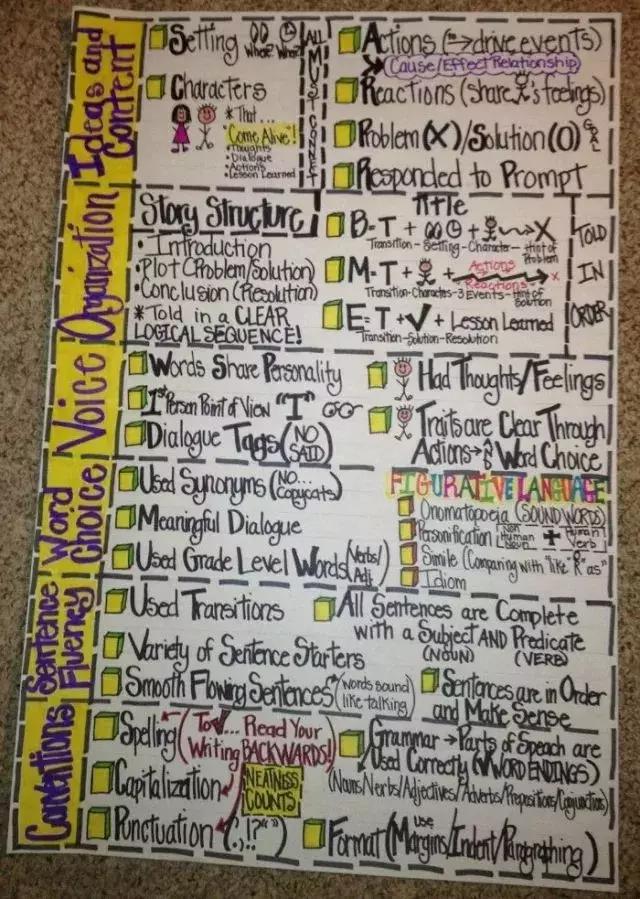 Ideas and Content
Setting Where? When?
Characters
*That...
"Come Alive"!
•Thoughts
•Dialogue
•Actions
•Lesson Learned
ALL MUST CONNECT
Actions (→drive events)
Cause/Effect Relationship
Reactions (share 's feelings)
Problem (X)/Solution (O)
Responded to Prompt
Organization
Story Structure
•Introduction
•Plot (Problem/Solution)
•Conclusion (Resolution)
*Told in a CLEAR
LOGICAL SEQUENCE!
Title
B=T + + → X
Transition-Setting-Character-Hint of Problem
M=T + + Actions → X
Reactions
Transition-Characters-3 Events-Hint of Solution
E=T+✓ + Lesson Learned
Transition-Solution-Resolution
TOLD
IN
ORDER
Voice
Words Share Personality
1st Person Point of View "I"
Dialogue Tags (NO SAID)
Had Thoughts/Feelings
Traits are Clear Through
Actions→ & Word Choice
Word Choice
Used Synonyms (NO... Copycats)
Meaningful Dialogue
Used Grade Level Words (Verbs/Adj.)
FIGURATIVE LANGUAGE
Onomatopoeia (SOUND WORDS)
Personification [Non Human Noun + Human Verb]
Simile (Comparing with "like" & "as")
Idiom
Sentence Fluency
Used Transitions
Variety of Sentence Starters
Smooth Flowing Sentences (words sound like talking)
All Sentences are Complete
with a Subject AND Predicate
(NOUN) (VERB)
Sentences are in Order
and Make Sense
Conventions
Spelling (To ✓... Read Your
Writing BACKWARDS!)
Capitalization
NEATNESS COUNTS
Punctuation (.,!?"")
Grammar → Parts of Speach are
Used Correctly (✓WORD ENDINGS)
(Nouns/Verbs/Adjectives/Adverbs/Prepositions/Conjunctions)
Format (use Margins/Indent/Paragraphing)